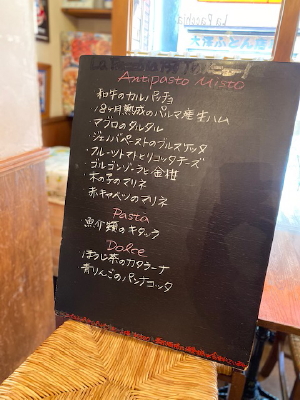 La Pacchia
Antipasto Misto
和牛のカルパッチョ
18ヶ月熟成のパルマ産生ハム
マグロのタルタル
ジェノバペーストのブルスケッタ
フルーツトマトとリコッタチーズ
ゴルゴンゾーラと金柑
木の子のマリネ
赤キャベツのマリネ
Pasta
魚介類のキタッラ
Dolce
ほうじ茶のカタラーナ
青りんごのパンナコッタ